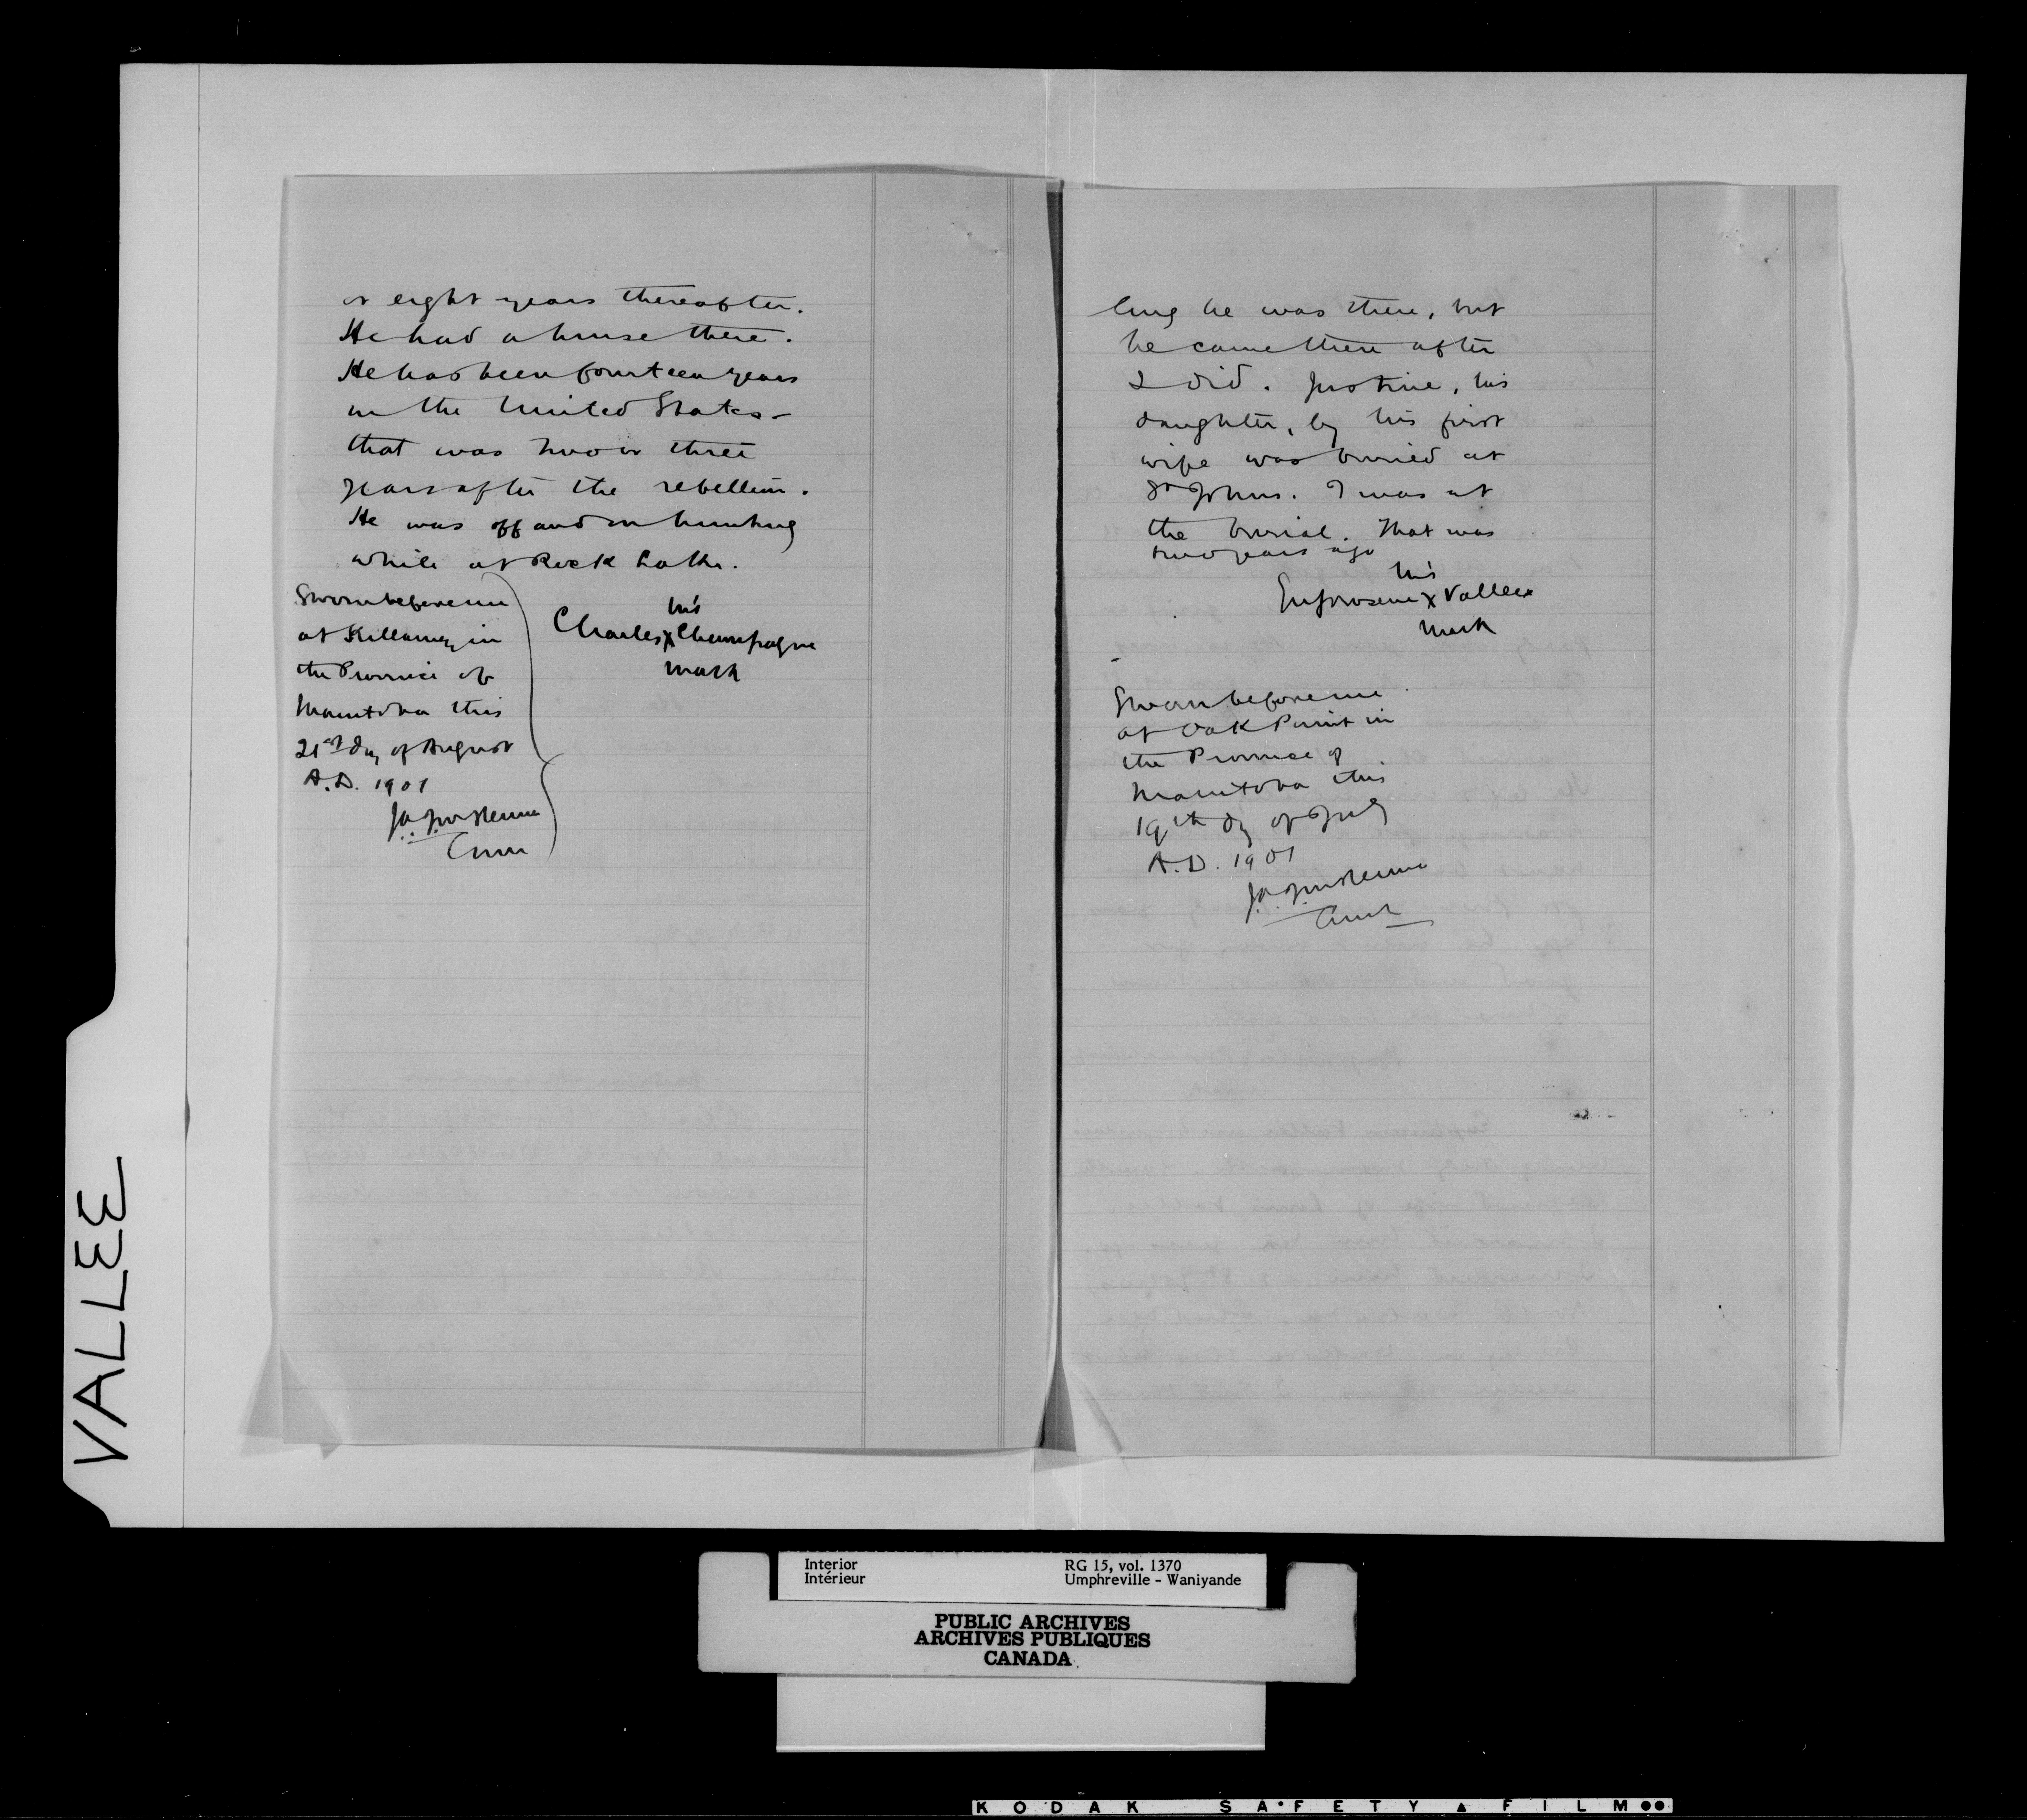 or eight years thereafter.
He had a house there.
He has been fourteen years
in the United States –
that was two or three
years after the rebellion.
He was off and on hunting
while at Rock Lake.
Sworn before me
at Killarney in
the Province of
Manitoba this
21st day of August
A.D. 1901
J.A.J. McKenna
Comr
his
Charles X Champagne
mark
long he was there, but
he came there after
I did. Justine, his
daughter, by his first
wife was buried at
St Johns. I was at
the burial. That was
two years ago
his
Euphrosine X Vallee
mark
Sworn before me
at Oak Point in
the Province of
Manitoba this
19th day of July
A.D. 1901
J.A.J. McKenna
Comr
VALLEE
Interior
Intérieur
RG 15, vol. 1370
Umphreville - Waniyande
PUBLIC ARCHIVES
ARCHIVES PUBLIQUES
CANADA
KODAK SAFETY FILM